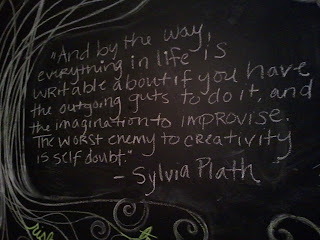 "And by the way,
everything in life is
writable about if you have
the outgoing guts to do it, and
the imagination to improvise.
The worst enemy to creativity
is self doubt."
- Sylvia Plath